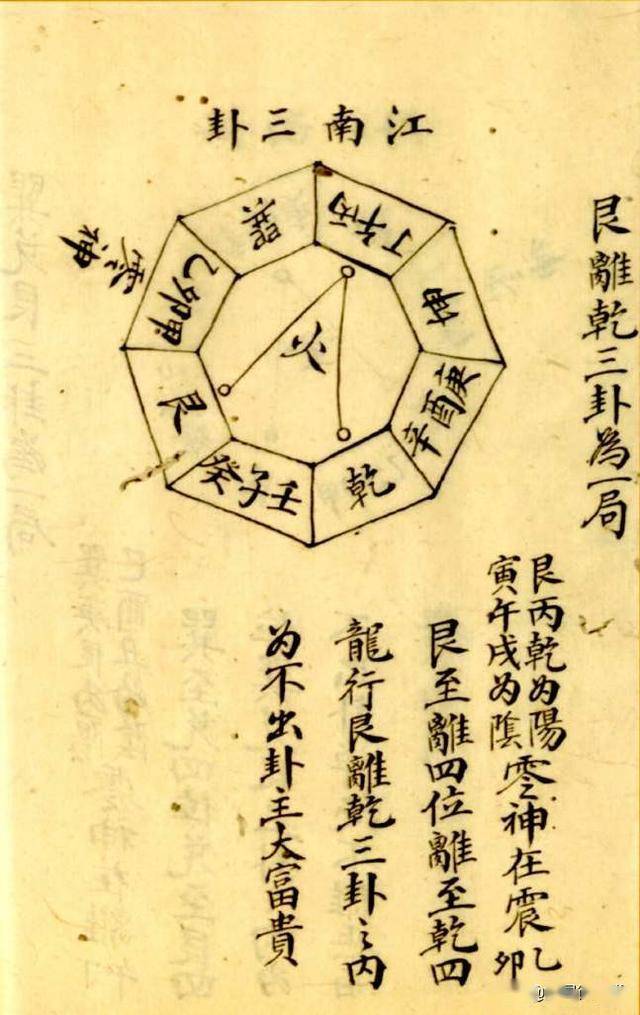 江南三卦
丁午丙
坤
庚酉辛
乾
壬子癸
艮
甲卯乙
巽
零神
火
艮離乾三卦為一局
艮丙乾为陽
寅午戌为陰
零神在震乙卯
艮至離四位離至乾四
龍行艮離乾三卦之内
为不出卦主大富貴